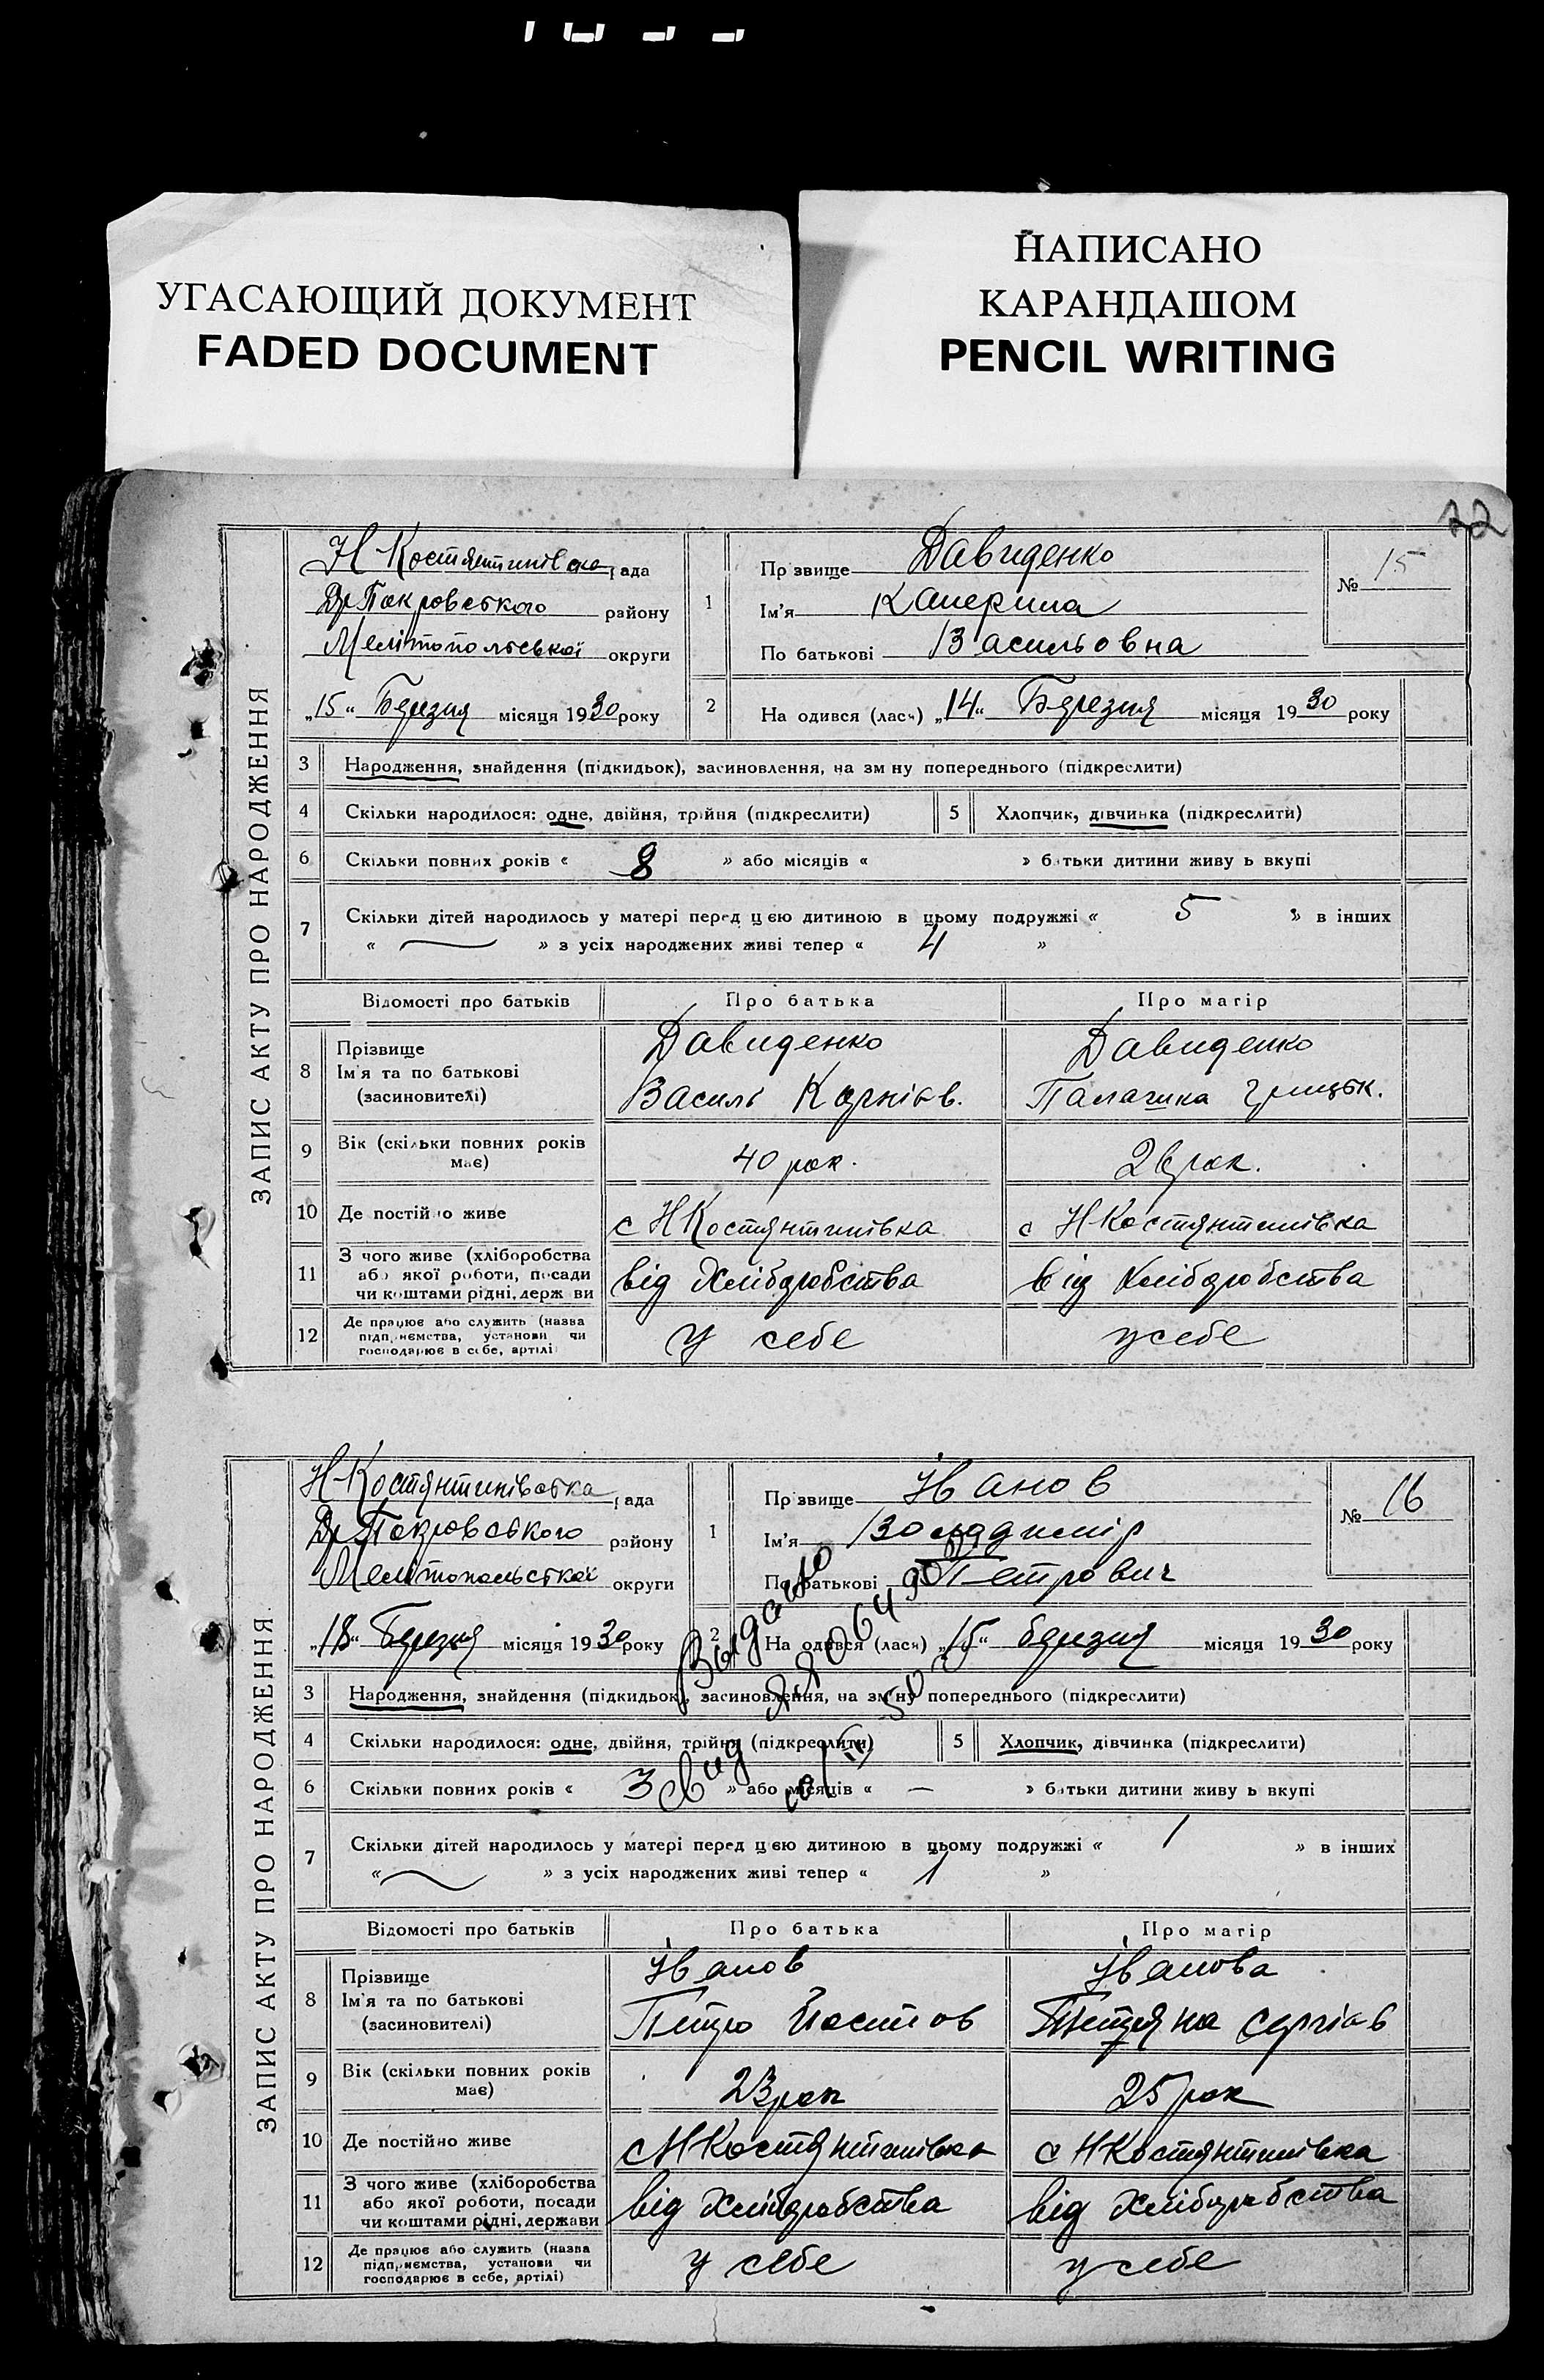 УГАСАЮЩИЙ ДОКУМЕНТ
FADED DOCUMENT
НАПИСАНО
КАРАНДАШОМ
PENCIL WRITING
22
ЗАПИС АКТУ ПРО НАРОДЖЕННЯ
Н Костянтинівска рада
Др Покровського району
Мелітопольської округи
„15“ Березня місяця 1930 року
1
Прізвище Давиденко
Ім'я Катерина
По батькові Васильовна
№ 15
2 На одився (лась) „14“ Березня місяця 1930 року
3 Народження, знайдення (підкидьок), засиновлення, на зм ну попереднього (підкреслити)
4 Скільки народилося: одне, двійня, трійня (підкреслити) 5 Хлопчик, дівчинка (підкреслити)
6 Скільки повних років « 8 » або місяців « » батьки дитини живу ь вкупі
7 Скільки дітей народилось у матері перед цією дитиною в цьому подружжі « 5 » в інших
« — » з усіх народжених живі тепер « 4 »
Відомості про батьків Про батька Про матір
8 Прізвище Ім'я та по батькові (засиновителі)
Давиденко Давиденко
Василь Корнієв. Палагика Грицьк.
9 Вік (скільки повних років має) 40 рок. 26 рок.
10 Де постійно живе с НКостянтинівка с НКостянтинівка
11 З чого живе (хліборобства або якої роботи, посади чи коштами рідні, держ ви від Хліборобства від Хліборобства
12 Де працює або служить (назва підприємства, установи чи господарює в себе, артілі) у себе у себе
ЗАПИС АКТУ ПРО НАРОДЖЕННЯ
Н-Костянтинівська рада
Др Покровського району
Мелітопольської округи
„18“ Березня місяця 1930 року
1
Прізвище Іванов
Ім'я Володимір
По батькові Петрович
№ 16
2 На одився (лась) „15“ березня місяця 1930 року
3 Народження, знайдення (підкидьок), засиновлення, на зм ну попереднього (підкреслити)
4 Скільки народилося: одне, двійня, трійня (підкреслити) 5 Хлопчик, дівчинка (підкреслити)
6 Скільки повних років « 3 » або місяців « — » батьки дитини живу ь вкупі
7 Скільки дітей народилось у матері перед цією дитиною в цьому подружжі « 1 » в інших
« — » з усіх народжених живі тепер « 1 »
Выдано
свид
Відомості про батьків Про батька Про матір
8 Прізвище Ім'я та по батькові (засиновителі)
Іванов Іванова
Петро Тетяна Сергієв
9 Вік (скільки повних років має) 23 рок 25 рок
10 Де постійно живе с НКостянтинівка с НКостянтинівка
11 З чого живе (хліборобства або якої роботи, посади чи коштами рідні, держави від Хліборобства від Хліборобства
12 Де працює або служить (назва підприємства, установи чи господарює в себе, артілі) у себе у себе